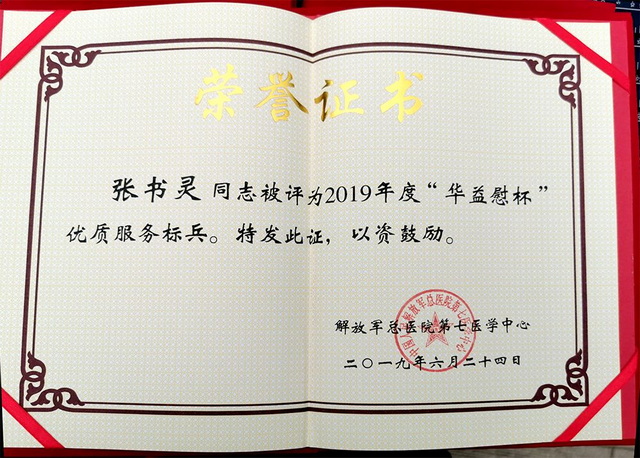 荣誉证书
张书灵 同志被评为2019年度“华益慰杯”
优质服务标兵。特发此证，以资鼓励。
解放军总医院第七医学中心
二〇一九年六月二十四日
中国人民解放军总医院第七医学中心